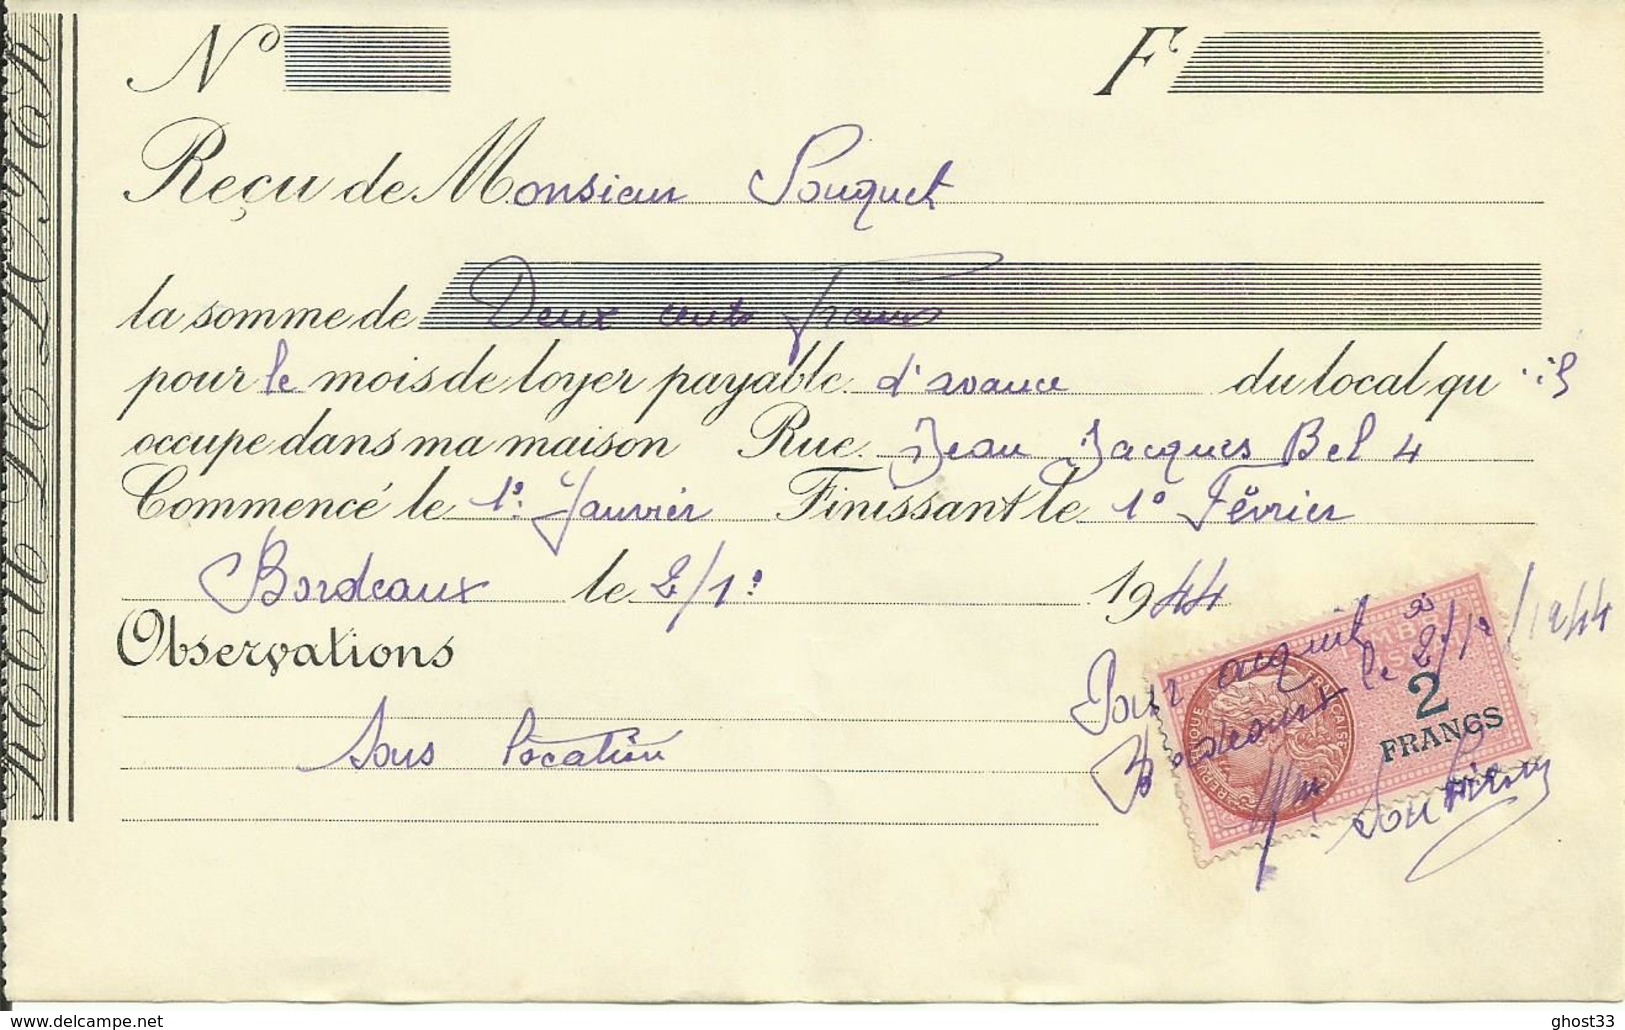 N°
F
Reçu de Monsieur Pouquet
la somme de Deux cents francs
pour le mois de loyer payable d'avance du local qu'il
occupe dans ma maison Rue Jean Jacques Bel 4
Commencé le 1° Janvier Finissant le 1° Février
Bordeaux le 2/1° 1944
Observations
Sous location
Pour acquit
Bordeaux le 2/1°/1944
2
FRANCS
www.delcampe.net
ghost33